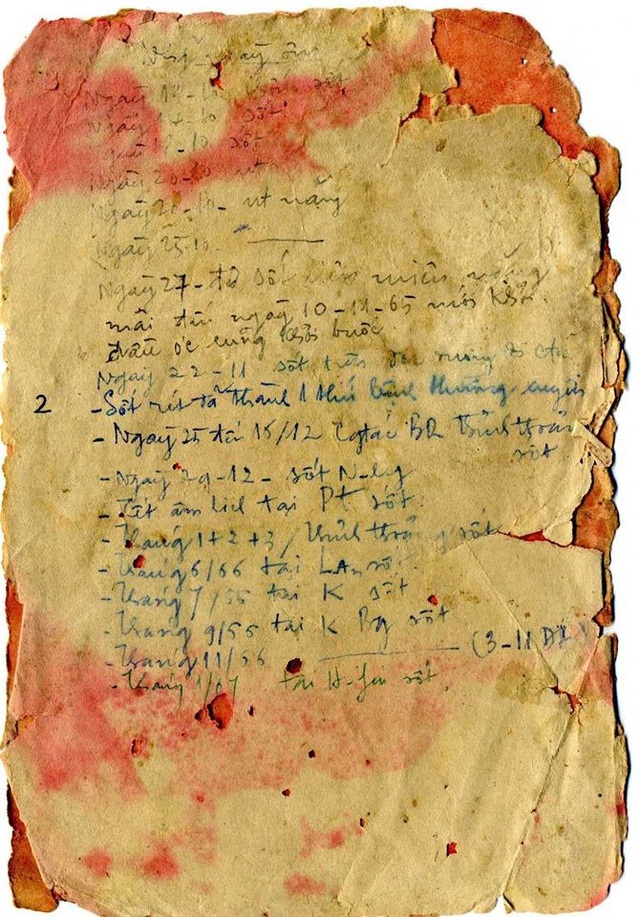 ngày ốm
Ngày 14-10 sốt
Ngày 17-10 sốt
-10 sốt
Ngày 20-10 nt
Ngày 20-10- nt nặng
Ngày 25-10 ———
Ngày 27- sốt liên miên
mãi đến ngày 10-11-65 mới khỏi.
đầu óc cũng khỏi buốc
Ngày 22-11 sốt trên
2 -Sốt rét đã thành 1 thứ bình thường
- Ngày 25 đến 15/12 Cgtác BR thỉnh thoảng
sốt
- Ngày 29-12- sốt N-ly
- Tết âm lịch tại PT sốt
- Tháng 1+2+3/ thỉnh thoảng sốt
- Tháng 6/66 tại LAn sốt.
- Tháng 7/66 tại K sốt
- Tháng 9/66 tại K Bg sốt
- Tháng 11/66 ——— (3-11 DL)
- Tháng 1/67 tại H- sốt